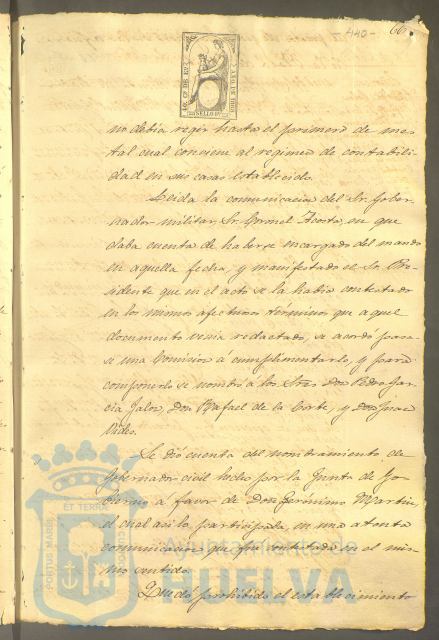 440-
66
SELLO
no debia regir hasta el primero de mes
tal cual conviene al regimen de contabili
dad en sus casas establecido.
Leida la comunicacion del Sr. Gober
nador militar Sr. Coronel Acosta, en que
daba cuenta de haberse encargado del mando
en aquella fecha, y manifestado el Sr. Pre
sidente que en el acto se la habia contestado
en los mismos afectuosos términos que aquel
documento venia redactado, se acordó pasa
se una Comision á cumplimentarlo, y para
componerla se nombró á los Sres. don Pedro Gar
cia Jalon, don Rafael de la Corte, y don
Se dió cuenta del nombramiento de
Gobernador civil hecho por la Junta de Go
bierno a favor de Don Gerónimo Martin,
el cual asi lo participaba, en una atenta
comunicacion que fue contestada en el mis
mo sentido.
Quedó prohibido el establecimiento
PORTUS MARIS ET TERRAE CUSTODIA
Ayuntamiento de
HUELVA